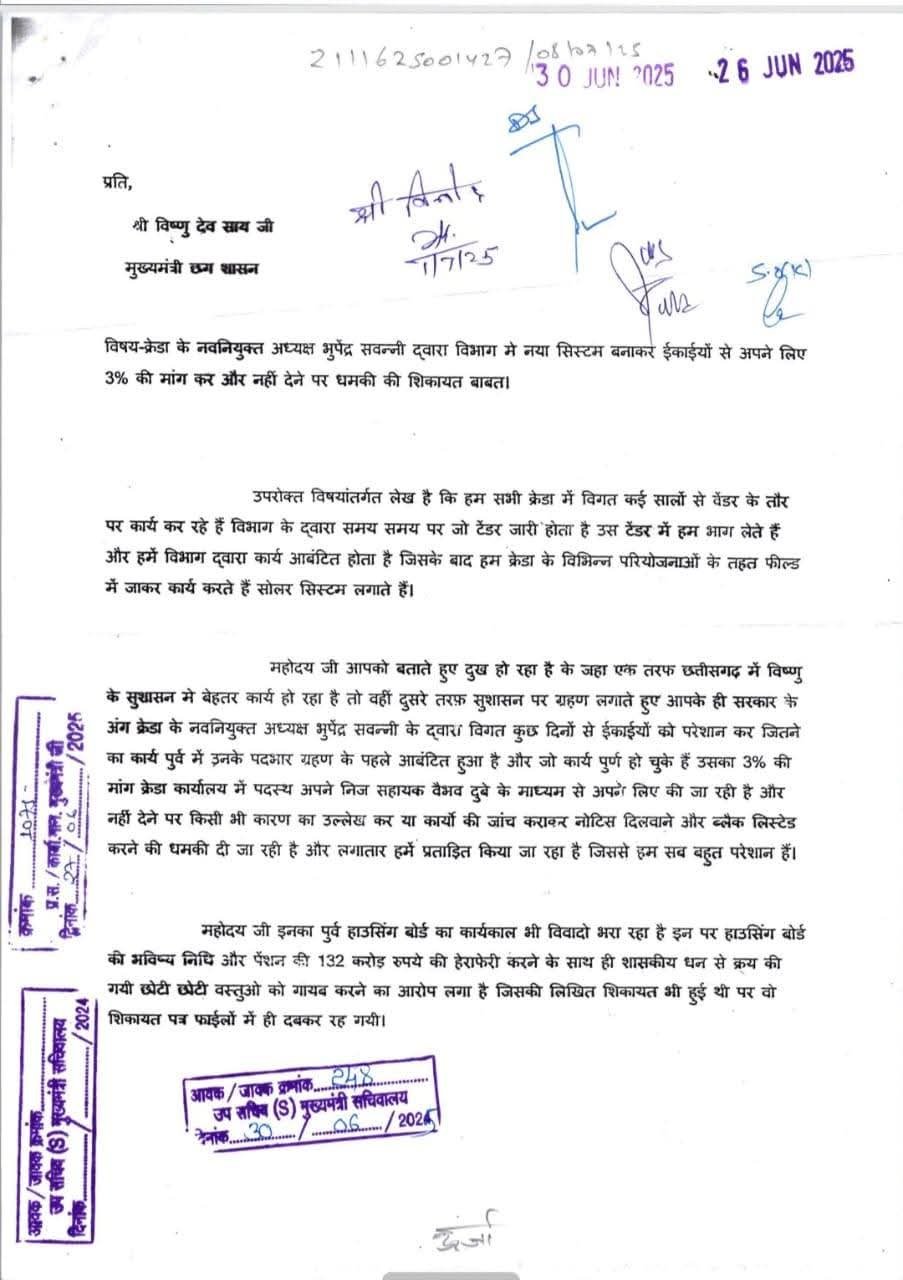 2111625001427/08/07/25
30 JUN 2025
26 JUN 2025
प्रति,
श्री विष्णु देव साय जी
मुख्यमंत्री छग शासन
श्री विनोद
1/7/25
विषय-क्रेडा के नवनियुक्त अध्यक्ष भुपेंद्र सवन्नी द्वारा विभाग मे नया सिस्टम बनाकर ईकाईयों से अपने लिए
3% की मांग कर और नहीं देने पर धमकी की शिकायत बाबत।
उपरोक्त विषयांतर्गत लेख है कि हम सभी क्रेडा में विगत कई सालों से वेंडर के तौर
पर कार्य कर रहे हैं विभाग के द्वारा समय समय पर जो टेंडर जारी होता है उस टेंडर में हम भाग लेते हैं
और हमें विभाग द्वारा कार्य आबंटित होता है जिसके बाद हम क्रेडा के विभिन्न परियोजनाओं के तहत फील्ड
में जाकर कार्य करते हैं सोलर सिस्टम लगाते हैं।
महोदय जी आपको बताते हुए दुख हो रहा है के जहा एक तरफ छत्तीसगढ़ में विष्णु
के सुशासन मे बेहतर कार्य हो रहा है तो वहीं दुसरे तरफ़ सुशासन पर ग्रहण लगाते हुए आपके ही सरकार के
अंग क्रेडा के नवनियुक्त अध्यक्ष भुपेंद्र सवन्नी के द्वारा विगत कुछ दिनों से ईकाईयों को परेशान कर जितने
का कार्य पुर्व में उनके पदभार ग्रहण के पहले आबंटित हुआ है और जो कार्य पुर्ण हो चुके हैं उसका 3% की
मांग क्रेडा कार्यालय में पदस्थ अपने निज सहायक वैभव दुबे के माध्यम से अपने लिए की जा रही है और
नहीं देने पर किसी भी कारण का उल्लेख कर या कार्यो की जांच कराकर नोटिस दिलवाने और ब्लैक लिस्टेड
करने की धमकी दी जा रही है और लगातार हमें प्रताड़ित किया जा रहा है जिससे हम सब बहुत परेशान हैं।
महोदय जी इनका पुर्व हाउसिंग बोर्ड का कार्यकाल भी विवादो भरा रहा है इन पर हाउसिंग बोर्ड
की भविष्य निधि और पेंशन की 132 करोड़ रुपये की हेराफेरी करने के साथ ही शासकीय धन से क्रय की
गयी छोटी छोटी वस्तुओ को गायब करने का आरोप लगा है जिसकी लिखित शिकायत भी हुई थी पर वो
शिकायत पत्र फाईलों में ही दबकर रह गयी।
क्रमांक 1075
प्र.स. / कार्या. मान. मुख्यमंत्री जी
दिनांक 27/06/2025
आवक / जावक क्रमांक
उप सचिव (S) मुख्यमंत्री सचिवालय
दिनांक /2024
आवक / जावक क्रमांक 248
उप सचिव (S) मुख्यमंत्री सचिवालय
दिनांक 30 / 06 / 2025
ऊर्जा